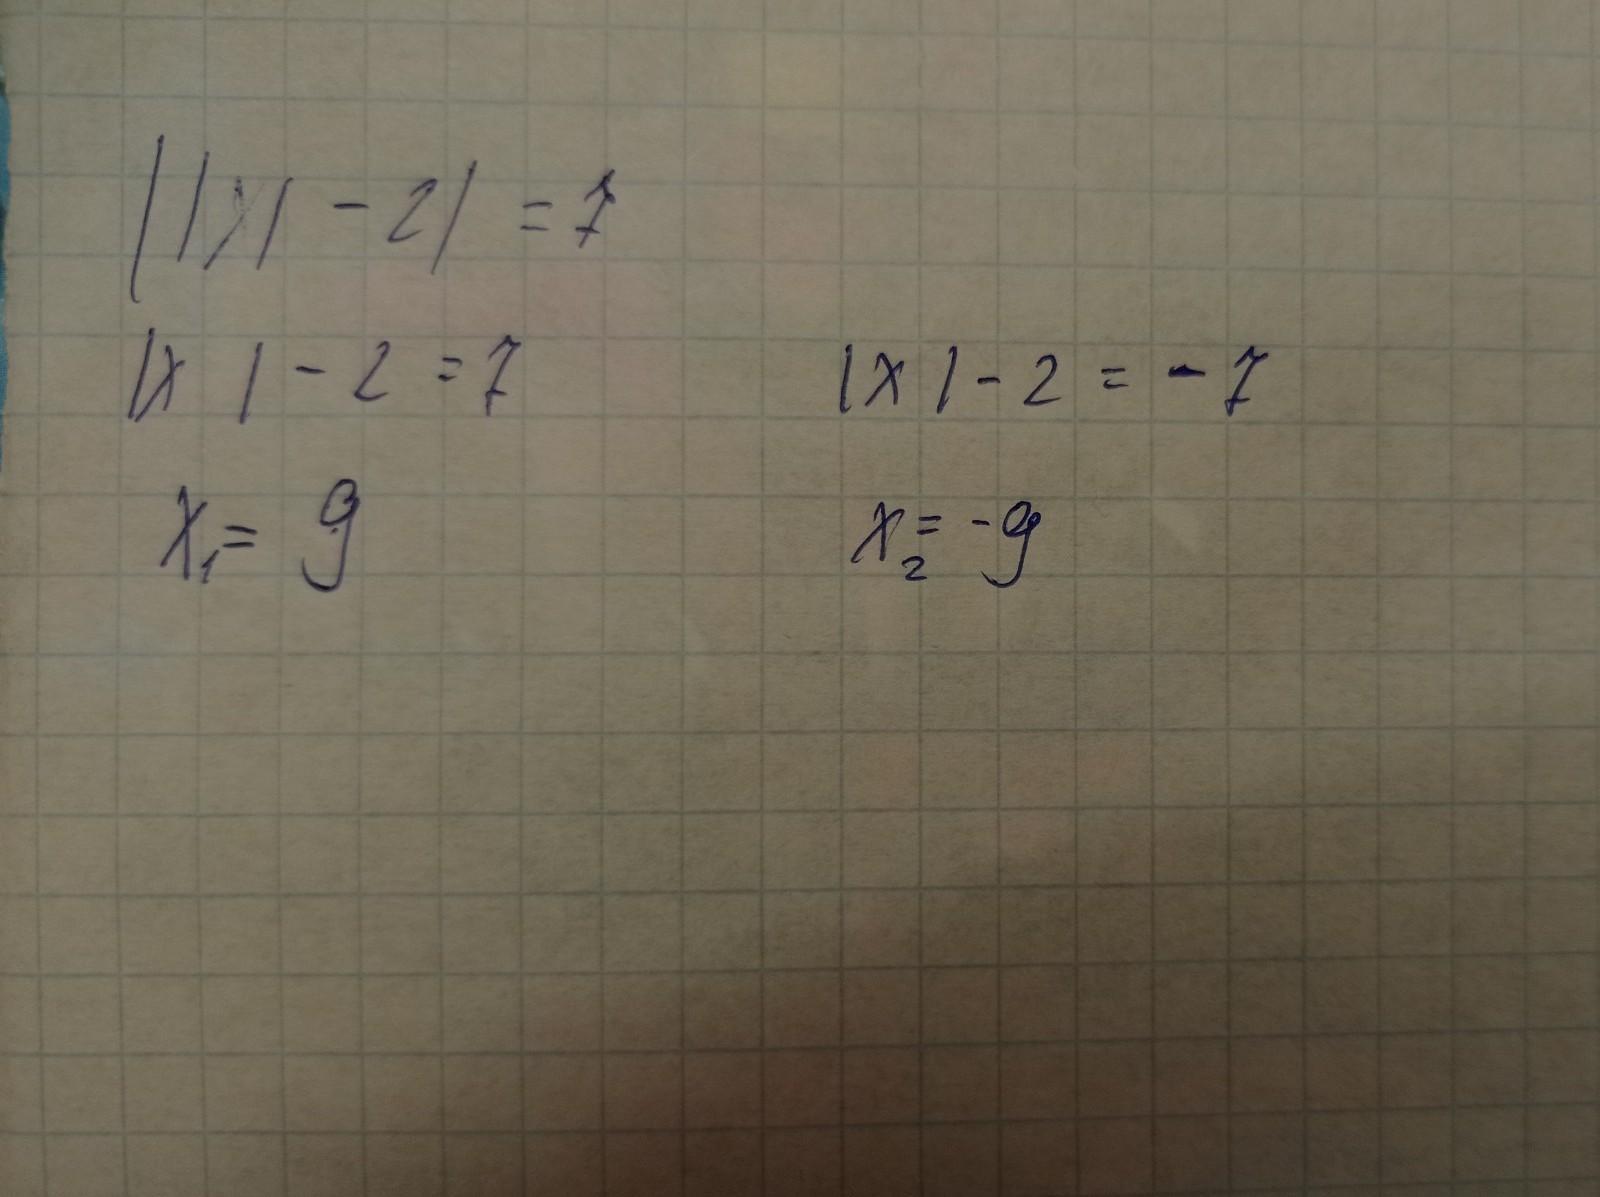 ||x| - 2| = 7
|x| - 2 = 7 |x| - 2 = - 7
x₁ = 9 x₂ = -9